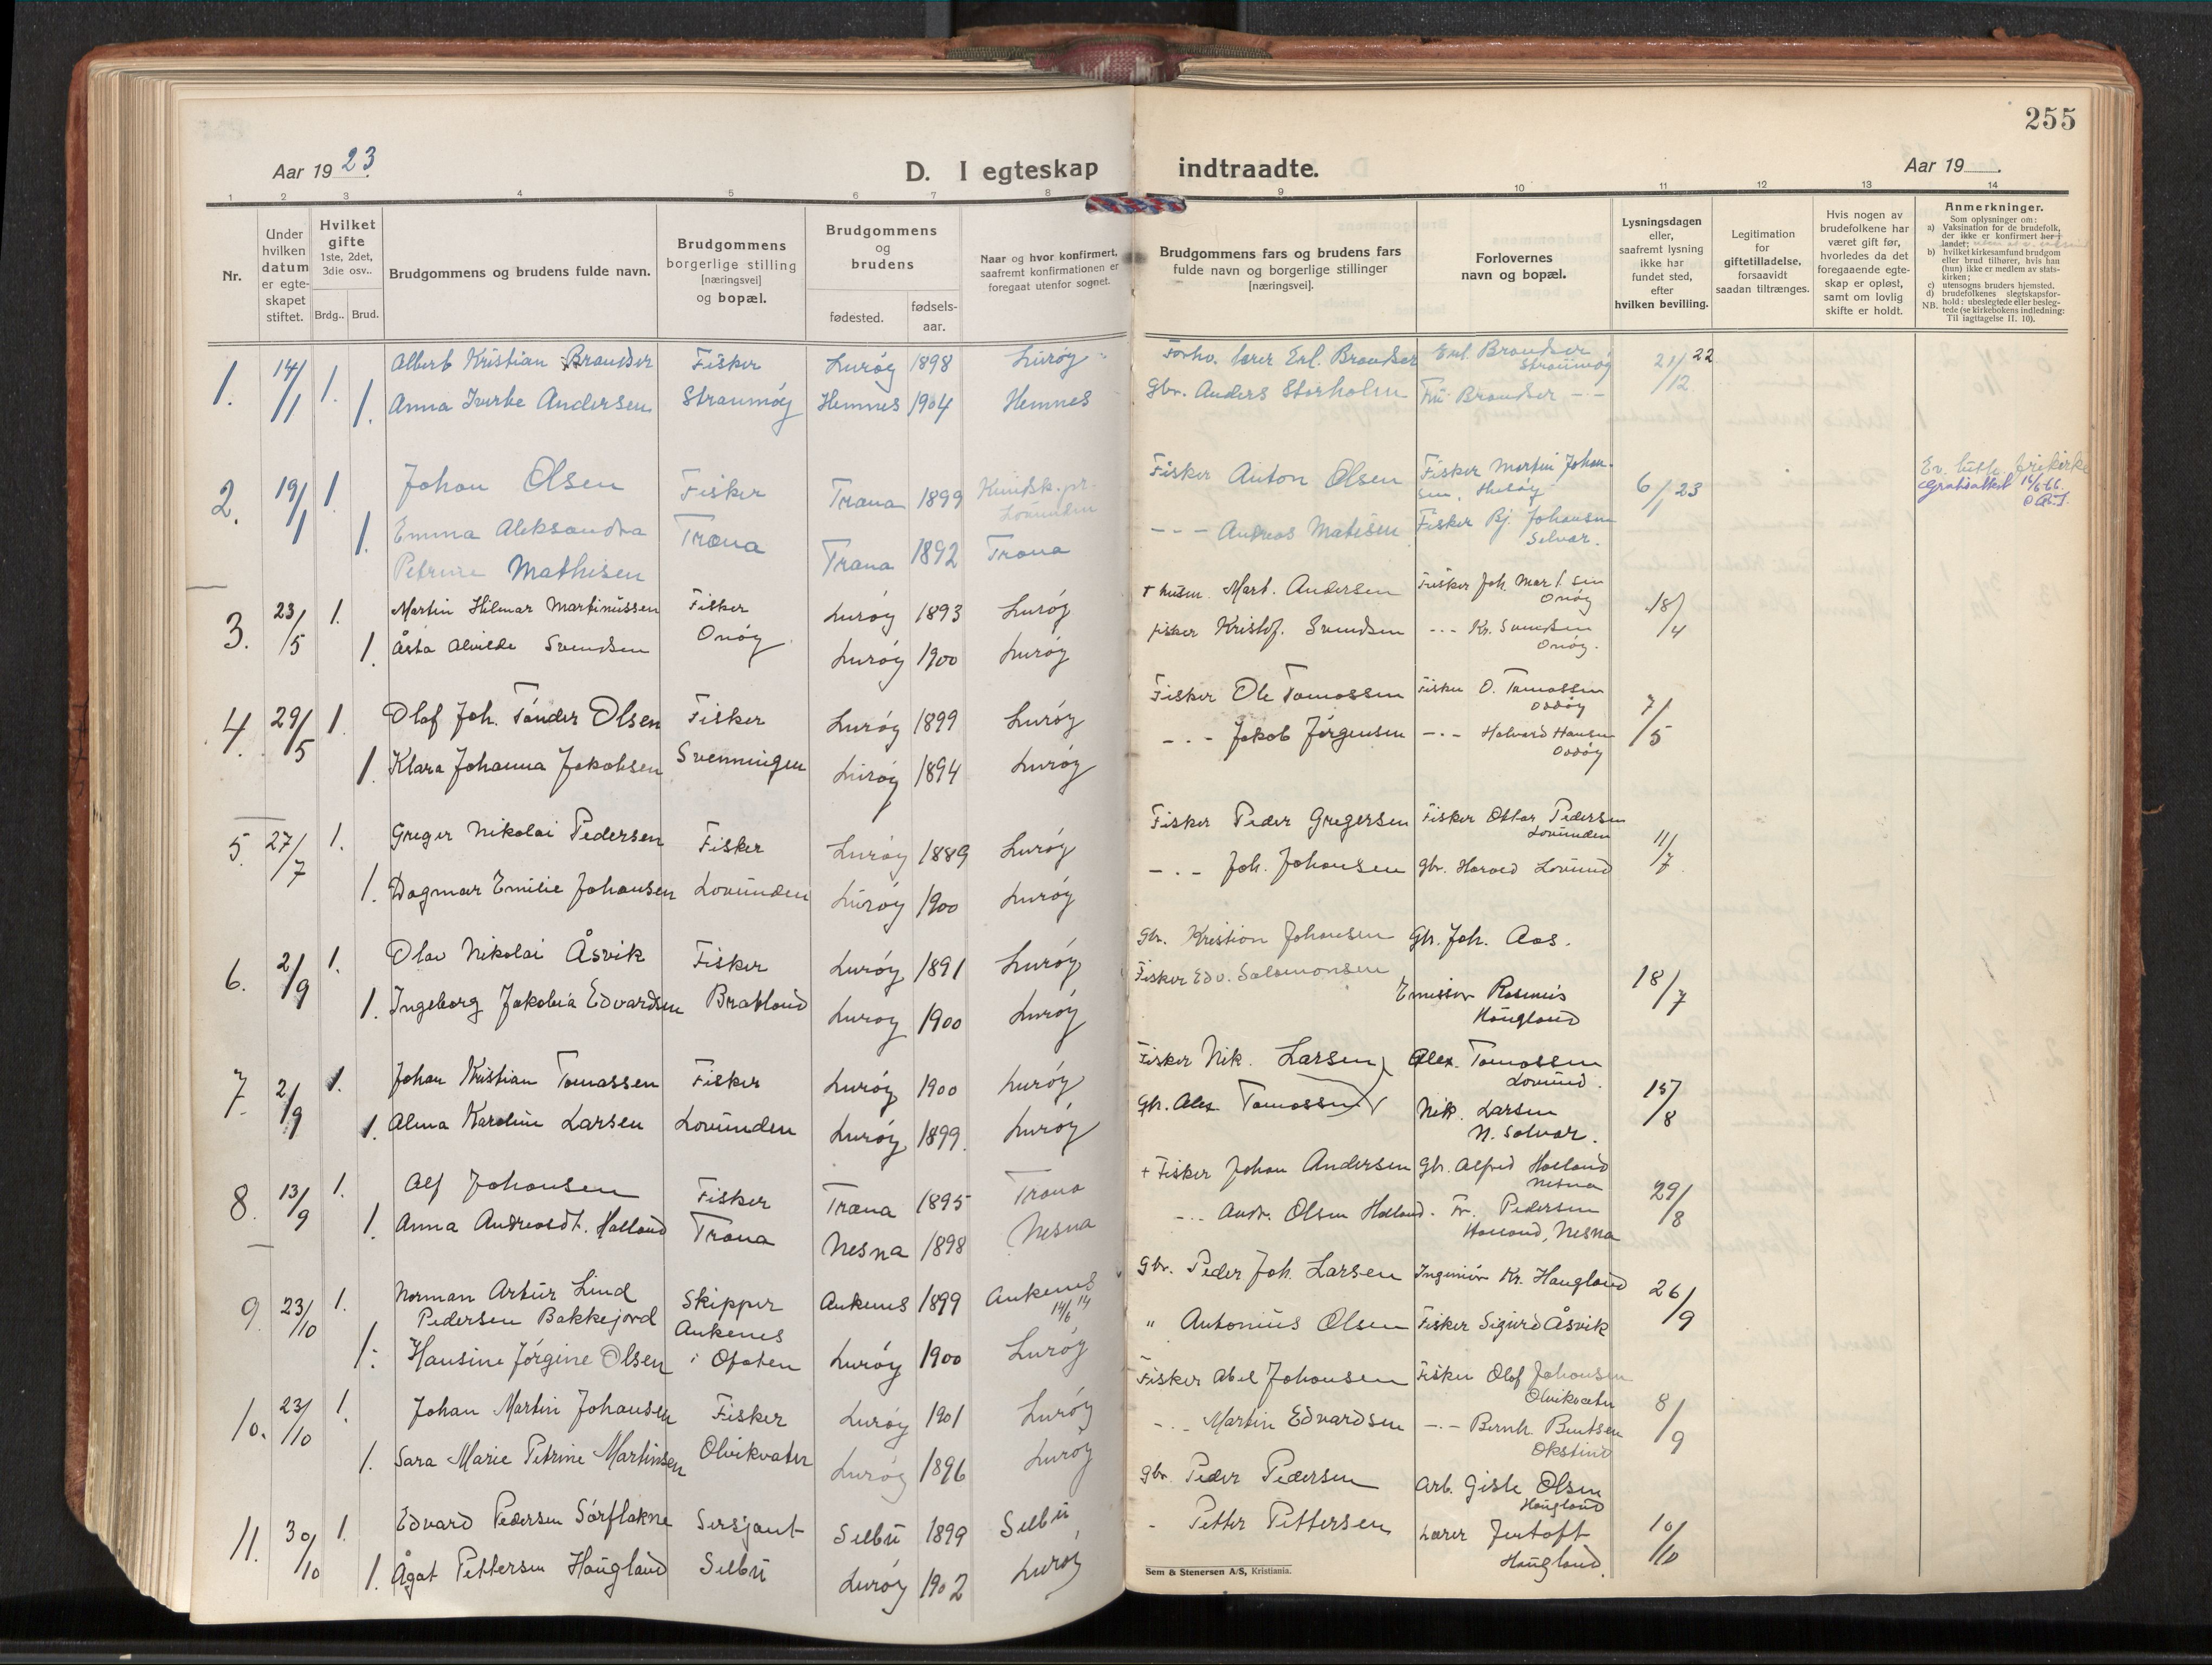 255
Aar 1923.
D. I egteskap indtraadte.
Aar 19
1 2 3 4 5 6 7 8 9 10 11 12 13 14
Nr.
Under hvilken datum er egteskapet stiftet.
Hvilket gifte 1ste, 2det, 3die osv..
Brdg.. Brud.
Brudgommens og brudens fulde navn.
Brudgommens borgerlige stilling [næringsvei] og bopæl.
Brudgommens og brudens
fødested.
fødsels-aar.
Naar og hvor konfirmert, saafremt konfirmationen er foregaat utenfor sognet.
Brudgommens fars og brudens fars fulde navn og borgerlige stillinger [næringsvei].
Forlovernes navn og bopæl.
Lysningsdagen eller, saafremt lysning ikke har fundet sted, efter hvilken bevilling.
Legitimation for giftetilladelse, forsaavidt saadan tiltrænges.
Hvis nogen av brudefolkene har været gift før, hvorledes da det foregaaende egteskap er opløst, samt om lovlig skifte er holdt.
Anmerkninger.
Som oplysninger om:
a) Vaksination for de brudefolk, der ikke er konfirmert her i landet;
b) hvilket kirkesamfund brudgom eller brud tilhører, hvis han (hun) ikke er medlem av statskirken;
c) utensogns bruders hjemsted.
d) brudefolkenes slegtskapsforhold: ubeslegtede eller beslegtede (se kirkebokens indledning: NB. Til iagttagelse II. 10).
1. 14/1 1. Albert Kristian Brandser Fisker Lurøy 1898 Lurøy Forhv. lærer Erl. Brandser Erl. Brandser Straumøy 21/12 22
1. Anna Iverke Andersen Straumøy Hemnes 1904 Hemnes Gbr. Anders Storholm Fru Brandser - -
2. 19/1 1 Johan Olsen Fisker Træna 1899 Lovunden Fisker Anton Olsen Fisker Martin Johansen, Husøy 6/1 23 Ev. luth. frikirke
1. Emma Aleksandra Træna
Petrine Mathisen Træna 1892 Træna - - - Andreas Matisen Fisker Bj. Johansen Selvær.
3. 23/5 1. Martin Hilmar Martinussen Fisker Lurøy 1893 Lurøy + husm. Mart. Andersen Fisker Joh. Mart.sen Onøy 18/4
1. Åsta Alvilde Svendsen Onøy Lurøy 1900 Lurøy Fisker Kristof. Svendsen - - - Kr. Svendsen Onøy.
4. 29/5 1 Olaf Joh. Tønder Olsen Fisker Lurøy 1899 Lurøy Fisker Ole Tomassen Fisker O. Tomassen 7/5
1. Klara Johanna Jakobsen Svenningen Lurøy 1894 Lurøy - . - Jakob Jørgensen - . - Halvard Hansen
5. 27/7 1. Greger Nikolai Pedersen Fisker Lurøy 1889 Lurøy Fisker Peder Gregersen Fisker Ottar Pedersen Lovunden 11/7
1. Dagmar Emilie Johansen Lovunden Lurøy 1900 Lurøy - . - Joh. Johansen Gbr. Harald Lovund
6. 2/9 1. Olav Nikolai Åsvik Fisker Lurøy 1891 Lurøy Gbr. Kristian Johansen Gbr. Joh. Aas. 18/7
1. Ingeborg Jakobia Edvardsen Bratland Lurøy 1900 Lurøy Fisker Edv. Salomonsen Emissær Rasmus Haugland
7. 2/9 1. Johan Kristian Tomassen Fisker Lurøy 1900 Lurøy Fisker Nik. Larsen Alex. Tomassen Lovund. 15/8
1. Alma Karoline Larsen Lovunden Lurøy 1899. Lurøy Gbr. Alex Tomassen Nik. Larsen N. Solvær.
8. 13/9 1. Alf Johansen Fisker Træna 1895 Træna + Fisker Johan Andersen Gbr. Alfred Hælland Nesna 29/8
1. Anna Andreasdt. Hælland Træna Nesna 1898 Nesna - . . Andr. Olsen Hælland. Fr. Pedersen Hælland, Nesna
9. 23/10 1. Norman Artur Lind Pedersen Bakkejord Skipper Ankenes 1899 Ankenes 14/6 14 Gbr. Peder Joh. Larsen Ingeniør Kr. Haugland 26/9
1. Hansine Jørgine Olsen Ankenes i Ofoten Lurøy 1900 Lurøy " Antonius Olsen Fisker Sigurd Åsvik
10. 23/10 1. Johan Martin Johansen Fisker Lurøy 1901 Lurøy Fisker Abel Johansen Fisker Olaf Johansen Olvikvatn 8/9
1. Sara Marie Petrine Martinsen Olvikvatn Lurøy 1896 Lurøy - . . Martin Edvardsen - . - Bernh. Bentsen Okstind
11. 30/10 1. Edvard Pedersen Sørflakne Sersjant Selbu 1899 Selbu Gbr Peder Pedersen Arb. Gisle Olsen Haugland 10/10
1. Ågot Pettersen Haugland Selbu Lurøy 1902 Lurøy - Petter Pettersen Lærer Jentoft Haugland.
Sem & Stenersen A/S, Kristiania.